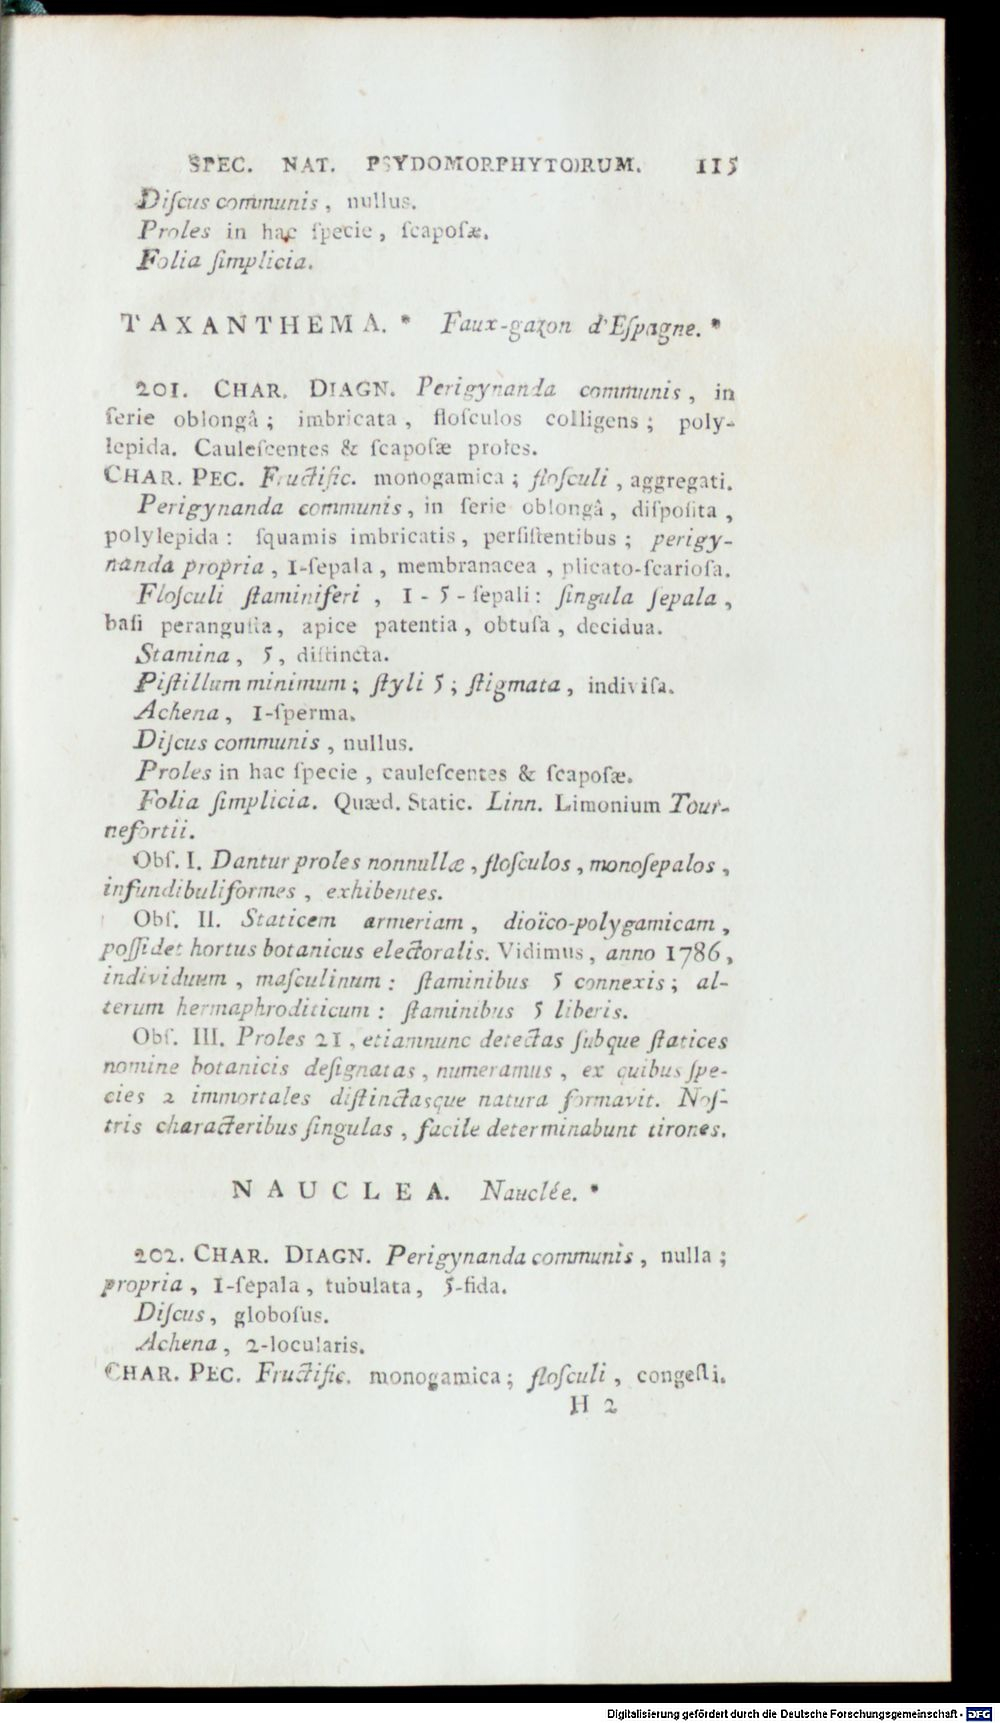 SPEC. NAT. PSYDOMORPHYTORUM. 115
Diſcus communis, nullus.
Proles in hac ſpecie, ſcapoſæ.
Folia ſimplicia.
TAXANTHEMA. * Faux-gazon d'Eſpagne. *
201. CHAR. DIAGN. Perigynanda communis, in
ſerie oblongâ; imbricata, floſculos colligens; poly-
lepida. Cauleſcentes & ſcapoſæ proles.
CHAR. PEC. Fructific. monogamica; floſculi, aggregati.
Perigynanda communis, in ſerie oblongâ, diſpoſita,
polylepida: ſquamis imbricatis, perſiſtentibus; perigy-
nanda propria, 1-ſepala, membranacea, plicato-ſcarioſa.
Floſculi ſtaminiferi, 1-5-ſepali: ſingula ſepala,
baſi peranguſta, apice patentia, obtuſa, decidua.
Stamina, 5, diſtincta.
Piſtillum minimum; ſtyli 5; ſtigmata, indiviſa.
Achena, 1-ſperma.
Diſcus communis, nullus.
Proles in hac ſpecie, cauleſcentes & ſcapoſæ.
Folia ſimplicia. Quæd. Static. Linn. Limonium Tour-
nefortii.
Obſ. I. Dantur proles nonnullæ, floſculos, monoſepalos,
infundibuliformes, exhibentes.
Obſ. II. Staticem armeriam, dioïco-polygamicam,
poſſidet hortus botanicus electoralis. Vidimus, anno 1786,
individuum, maſculinum: ſtaminibus 5 connexis; al-
terum hermaphroditicum: ſtaminibus 5 liberis.
Obſ. III. Proles 21, etiamnunc detectas ſubque ſtatices
nomine botanicis deſignatas, numeramus, ex quibus ſpe-
cies 2 immortales diſtinctasque natura formavit. Noſ-
tris characteribus ſingulas, facile determinabunt tirones.
NAUCLEA. Nauclée. *
202. CHAR. DIAGN. Perigynanda communis, nulla;
propria, 1-ſepala, tubulata, 5-fida.
Diſcus, globoſus.
Achena, 2-locularis.
CHAR. PEC. Fructific. monogamica; floſculi, congeſti.
H 2
Digitalisierung gefördert durch die Deutsche Forschungsgemeinschaft - DFG